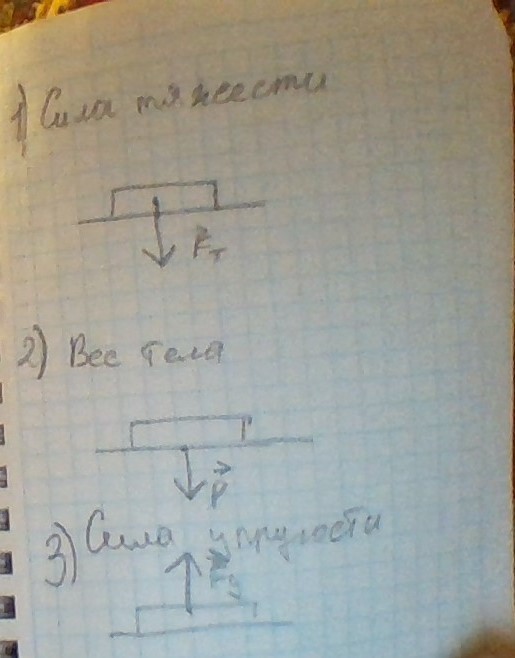 1) Сила тяжести
Fт
2) Вес тела
P
3) Сила упругости